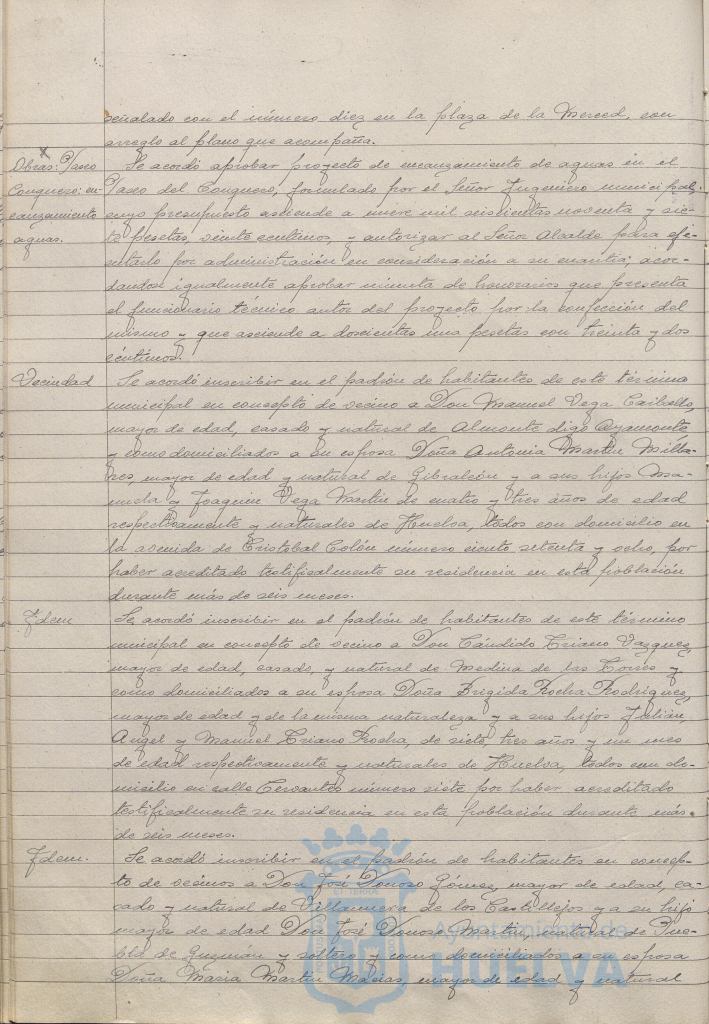 señalado con el número diez en la plaza de la Merced, con
arreglo al plano que acompaña.
Obras: Paseo
Conquero: en-
cauzamiento
aguas.
Se acordó aprobar proyecto de encauzamiento de aguas en el
Paseo del Conquero, formulado por el Señor Ingeniero municipal,
cuyo presupuesto asciende a nueve mil seiscientas noventa y sie-
te pesetas, veinte centimos, y autorizar al Señor Alcalde para eje-
cutarlo por administración en consideración a su cuantia; acor-
dandose igualmente aprobar minuta de honorarios que presenta
el funcionario técnico autor del proyecto por la confección del
mismo y que asciende a doscientas una pesetas con treinta y dos
céntimos.
Vecindad
Se acordó inscribir en el padrón de habitantes de este término
municipal en concepto de vecino a Don Manuel Vega Carballo,
mayor de edad, casado y natural de Almonte digo Ayamonte
y como domiciliados a su esposa Doña Antonia Martin Milla-
res, mayor de edad y natural de Gibraleón y a sus hijos Ma-
nuela y Joaquin Vega Martin de cuatro y tres años de edad
respectivamente y naturales de Huelva, todos con domicilio en
la avenida de Cristobal Colón número ciento setenta y ocho, por
haber acreditado testificalmente su residencia en esta población
durante más de seis meses.
Idem
Se acordó inscribir en el padrón de habitantes de este término
municipal en concepto de vecino a Don Cándido Triano Vazquez,
mayor de edad, casado, y natural de Medina de las Torres y
como domiciliados a su esposa Doña Brigida Rocha Rodriguez,
mayor de edad y de la misma naturaleza y a sus hijos Julián,
Angel y Manuel Triano Rocha, de siete, tres años y un mes
de edad respectivamente y naturales de Huelva, todos con do-
micilio en calle Cervantes número siete por haber acreditado
testificalmente su residencia en esta población durante más
de seis meses.
Idem.
Se acordó inscribir en el padrón de habitantes en concep-
to de vecinos a Don José Donoso Gómez, mayor de edad, ca-
sado y natural de Villanueva de los Castillejos y a su hijo
mayor de edad Don José Donoso Martin, natural de Pue-
bla de Guzmán y soltero y como domiciliados a su esposa
Doña Maria Martin Macias, mayor de edad y natural
Ayuntamiento de
HUELVA